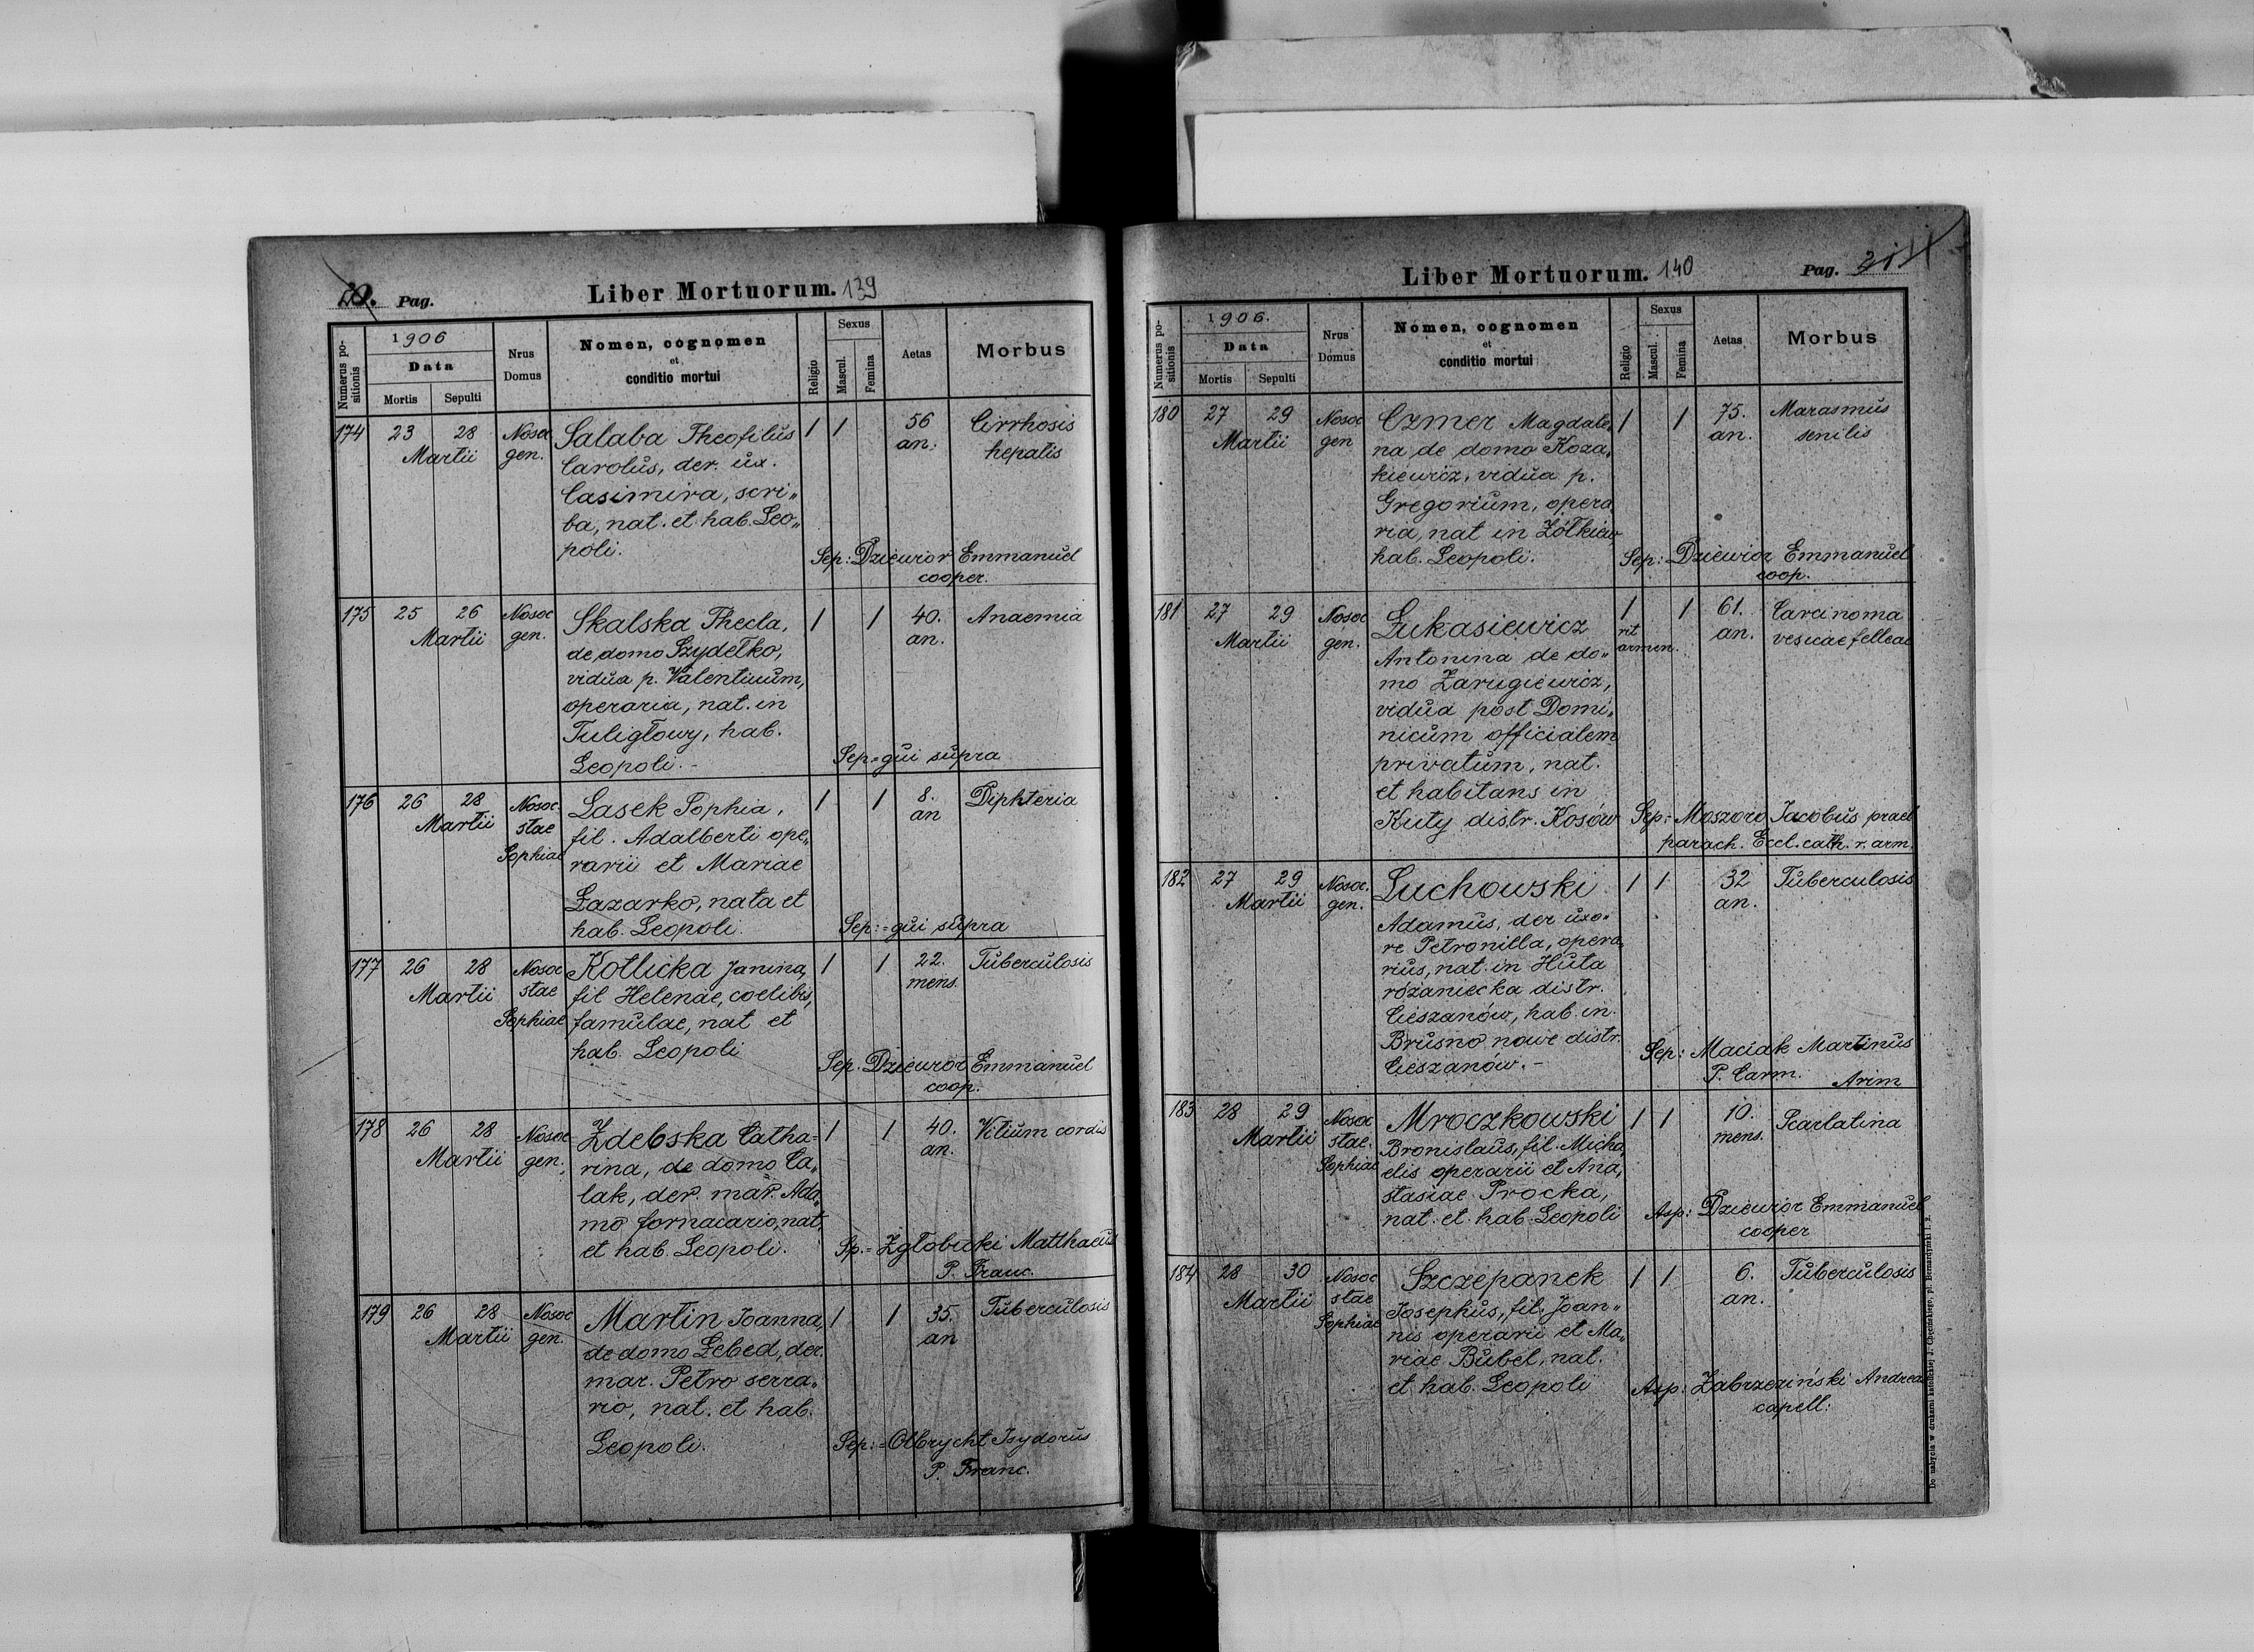 20. Pag. Liber Mortuorum. 139
Numerus positionis
1906
Data
Mortis Sepulti
Nrus Domus
Nomen, cognomen
et
conditio mortui
Religio
Sexus
Mascul. Femina
Aetas
Morbus
174 23 28 Nosoc Salaba Theofilus 1 1 56 Cirrhosis
Martii gen. Carolus, der. ux. an. hepatis
Casimira, scri„
ba, nat. et hab. Leo„
poli.
Sep: Dziewior Emmanuel
cooper.
175 25 26 Nosoc Skalska Thecla, 1 1 40. Anaemia
Martii gen. de domo Szydełko, an.
vidua p. Valentinum,
operaria, nat. in
Tuligłowy, hab.
Leopoli.-
Sep= qui supra
176 26 28 Nosoc. Lasek Sophia, 1 1 8. Diphteria
Martii stae fil. Adalberti ope„ an
Sophiae rarii et Mariae
Łazarko, nata et
hab. Leopoli.
Sep:= qui supra
177 26 28 Nosoc Kotlicka Janina, 1 1 22. Tuberculosis
Martii stae fil Helenae, coelibis, mens.
Sophiae famulae, nat et
hab. Leopoli
Sep. Dziewior Emmanuel
coop.
178 26 28 Nosoc Zdebska Catha= 1 1 40. Vitium cordis
Martii gen. rina, de domo Ca„ an.
lak, der. mar. Ada„
mo fornacario, nat,
et hab. Leopoli.
Sp.= Zgłobicki Matthaeus
P. Franc.
179 26 28 Nosoc Martin Joanna, 1 1 35. Tuberculosis
Martii gen. de domo Łebed, der. an
mar. Petro serra„
rio, nat. et hab.
Leopoli.
Sep:= Olbrycht Isydorus
P. Franc.
Liber Mortuorum. 140 Pag.
Numerus positionis
1906.
Data
Mortis Sepulti
Nrus Domus
Nomen, cognomen
et
conditio mortui
Religio
Sexus
Mascul. Femina
Aetas
Morbus
180 27 29 Nosoc Czmer Magdale„ 1 1 75. Marasmus
Martii gen na de domo Koza„ an. senilis
kiewicz, vidua p.
Gregorium, opera„
ria, nat in Żółkiew
hab. Leopoli.
Sep: Dziewior Emmanuel
coop.
181 27 29 Nosoc Łukasiewicz 1 1 61. Carcinoma
Martii gen. Antonina de do„ rit armen. an. vesicae felleae
mo Zarugiewicz,
vidua post Domi„
nicum officialem
privatum, nat.
et habitans in
Kuty distr. Kosów
Sep: Moszoro Jacobus prael
paroch. Eccl. cath. r. arm.
182 27 29 Nosoc. Luchowski 1 1 32 Tuberculosis
Martii gen. Adamus, der uxo„ an.
re Petronilla, opera„
rius, nat. in Huta
różaniecka distr.
Cieszanów, hab. in
Brusno nowe distr.
Cieszanów.-
Sep: Maciak Martinus
P. Carm.
183 28 29 Nosoc Mroczkowski 1 1 10. Scarlatina
Martii stae. Bronislaus, fil. Micha„ mens.
Sophiae elis operarii et Ana„
stasiae Procka,
nat. et. hab. Leopoli
Asp: Dziewior Emmanuel
cooper
184 28 30 Nosoc Szczepanek 1 1 6. Tuberculosis
Martii stae Josephus, fil. Joan„ an.
Sophiae nis operarii et Ma„
riae Bubel, nat.
et hab. Leopoli
Asp: Zabrzeziński Andreas
capell:
Do nabycia w drukarni katolickiej J. Chęcińskiego, pl. Bernardyński l. 2.